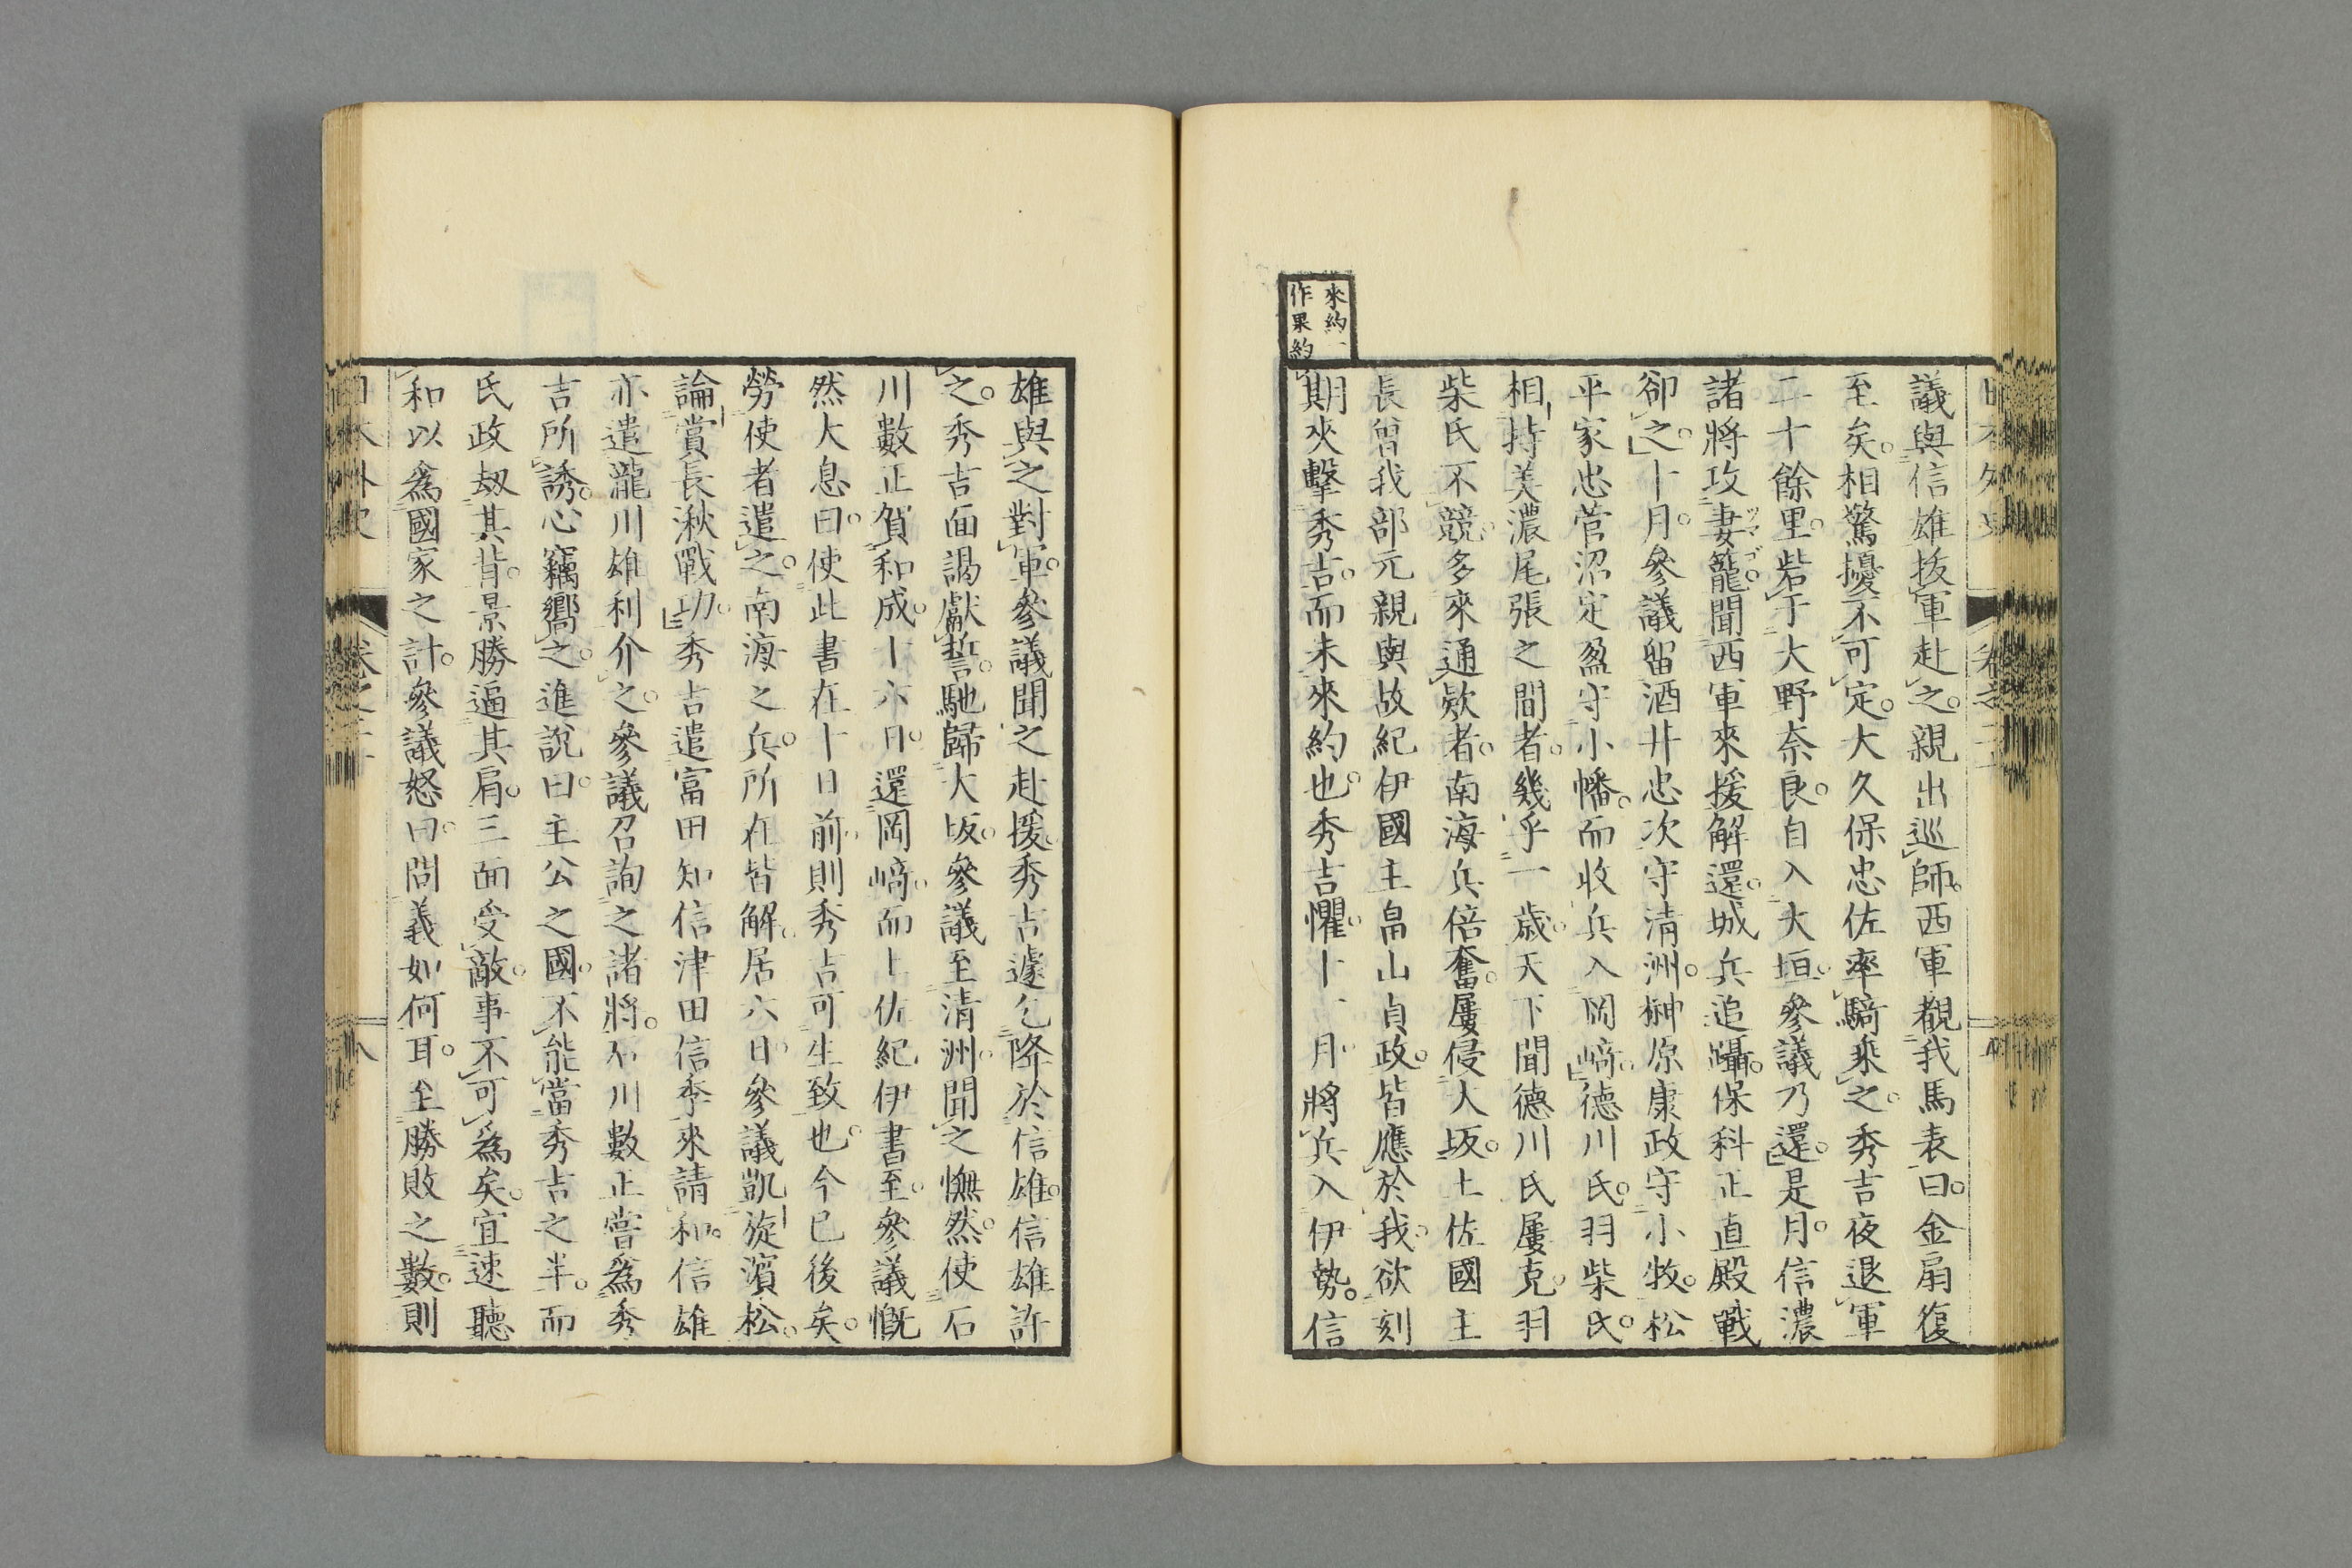 議與信雄抜軍赴之。親出巡師。西軍覩我馬表曰。金扇復
至矣。相驚擾不可定。大久保忠佐率騎乘之。秀吉夜退軍
二十餘里。砦于大野奈良。自入大垣。參議乃還。是月。信濃
諸將攻妻籠。聞西軍來援解還。城兵追躡。保科正直殿戰
ツマゴ
卻之。十月。參議留酒井忠次守清洲。榊原康政守小牧。松
平家忠菅沼定盈守小幡。而收兵入岡﨑。德川氏。羽柴氏。
相持美濃尾張之間者。幾乎一歲。天下聞德川氏屢克。羽
柴氏不競。多來通欵者。南海兵倍奮。屢侵大坂。土佐國主
長曾我部元親與故紀伊國主畠山貞政。皆應於我。欲刻
來約一
作果約
期夾擊秀吉。而未來約也。秀吉懼。十一月。將兵入伊勢。信
雄與之對軍。參議聞之赴援。秀吉遽乞降於信雄。信雄許
之。秀吉面謁獻誓。馳歸大坂。參議至清洲。聞之憮然。使石
川數正賀和成。十六日。還岡﨑。而土佐紀伊書至。參議慨
然大息曰。使此書在十日前。則秀吉可生致也。今已後矣。
勞使者遣之。南海之兵。所在皆解。居六日。參議凱旋濱松。
論賞長湫戰功。秀吉遣富田知信津田信季來請和。信雄
亦遣瀧川雄利介之。參議召詢之諸將。石川數正嘗為秀
吉所誘。心竊嚮之。進說曰。主公之國。不能當秀吉之半。而
氏政刼其背。景勝逼其肩。三面受敵。事不可為矣。宜速聽
和以為國家之計。參議怒曰。問義如何耳。至勝敗之數。則